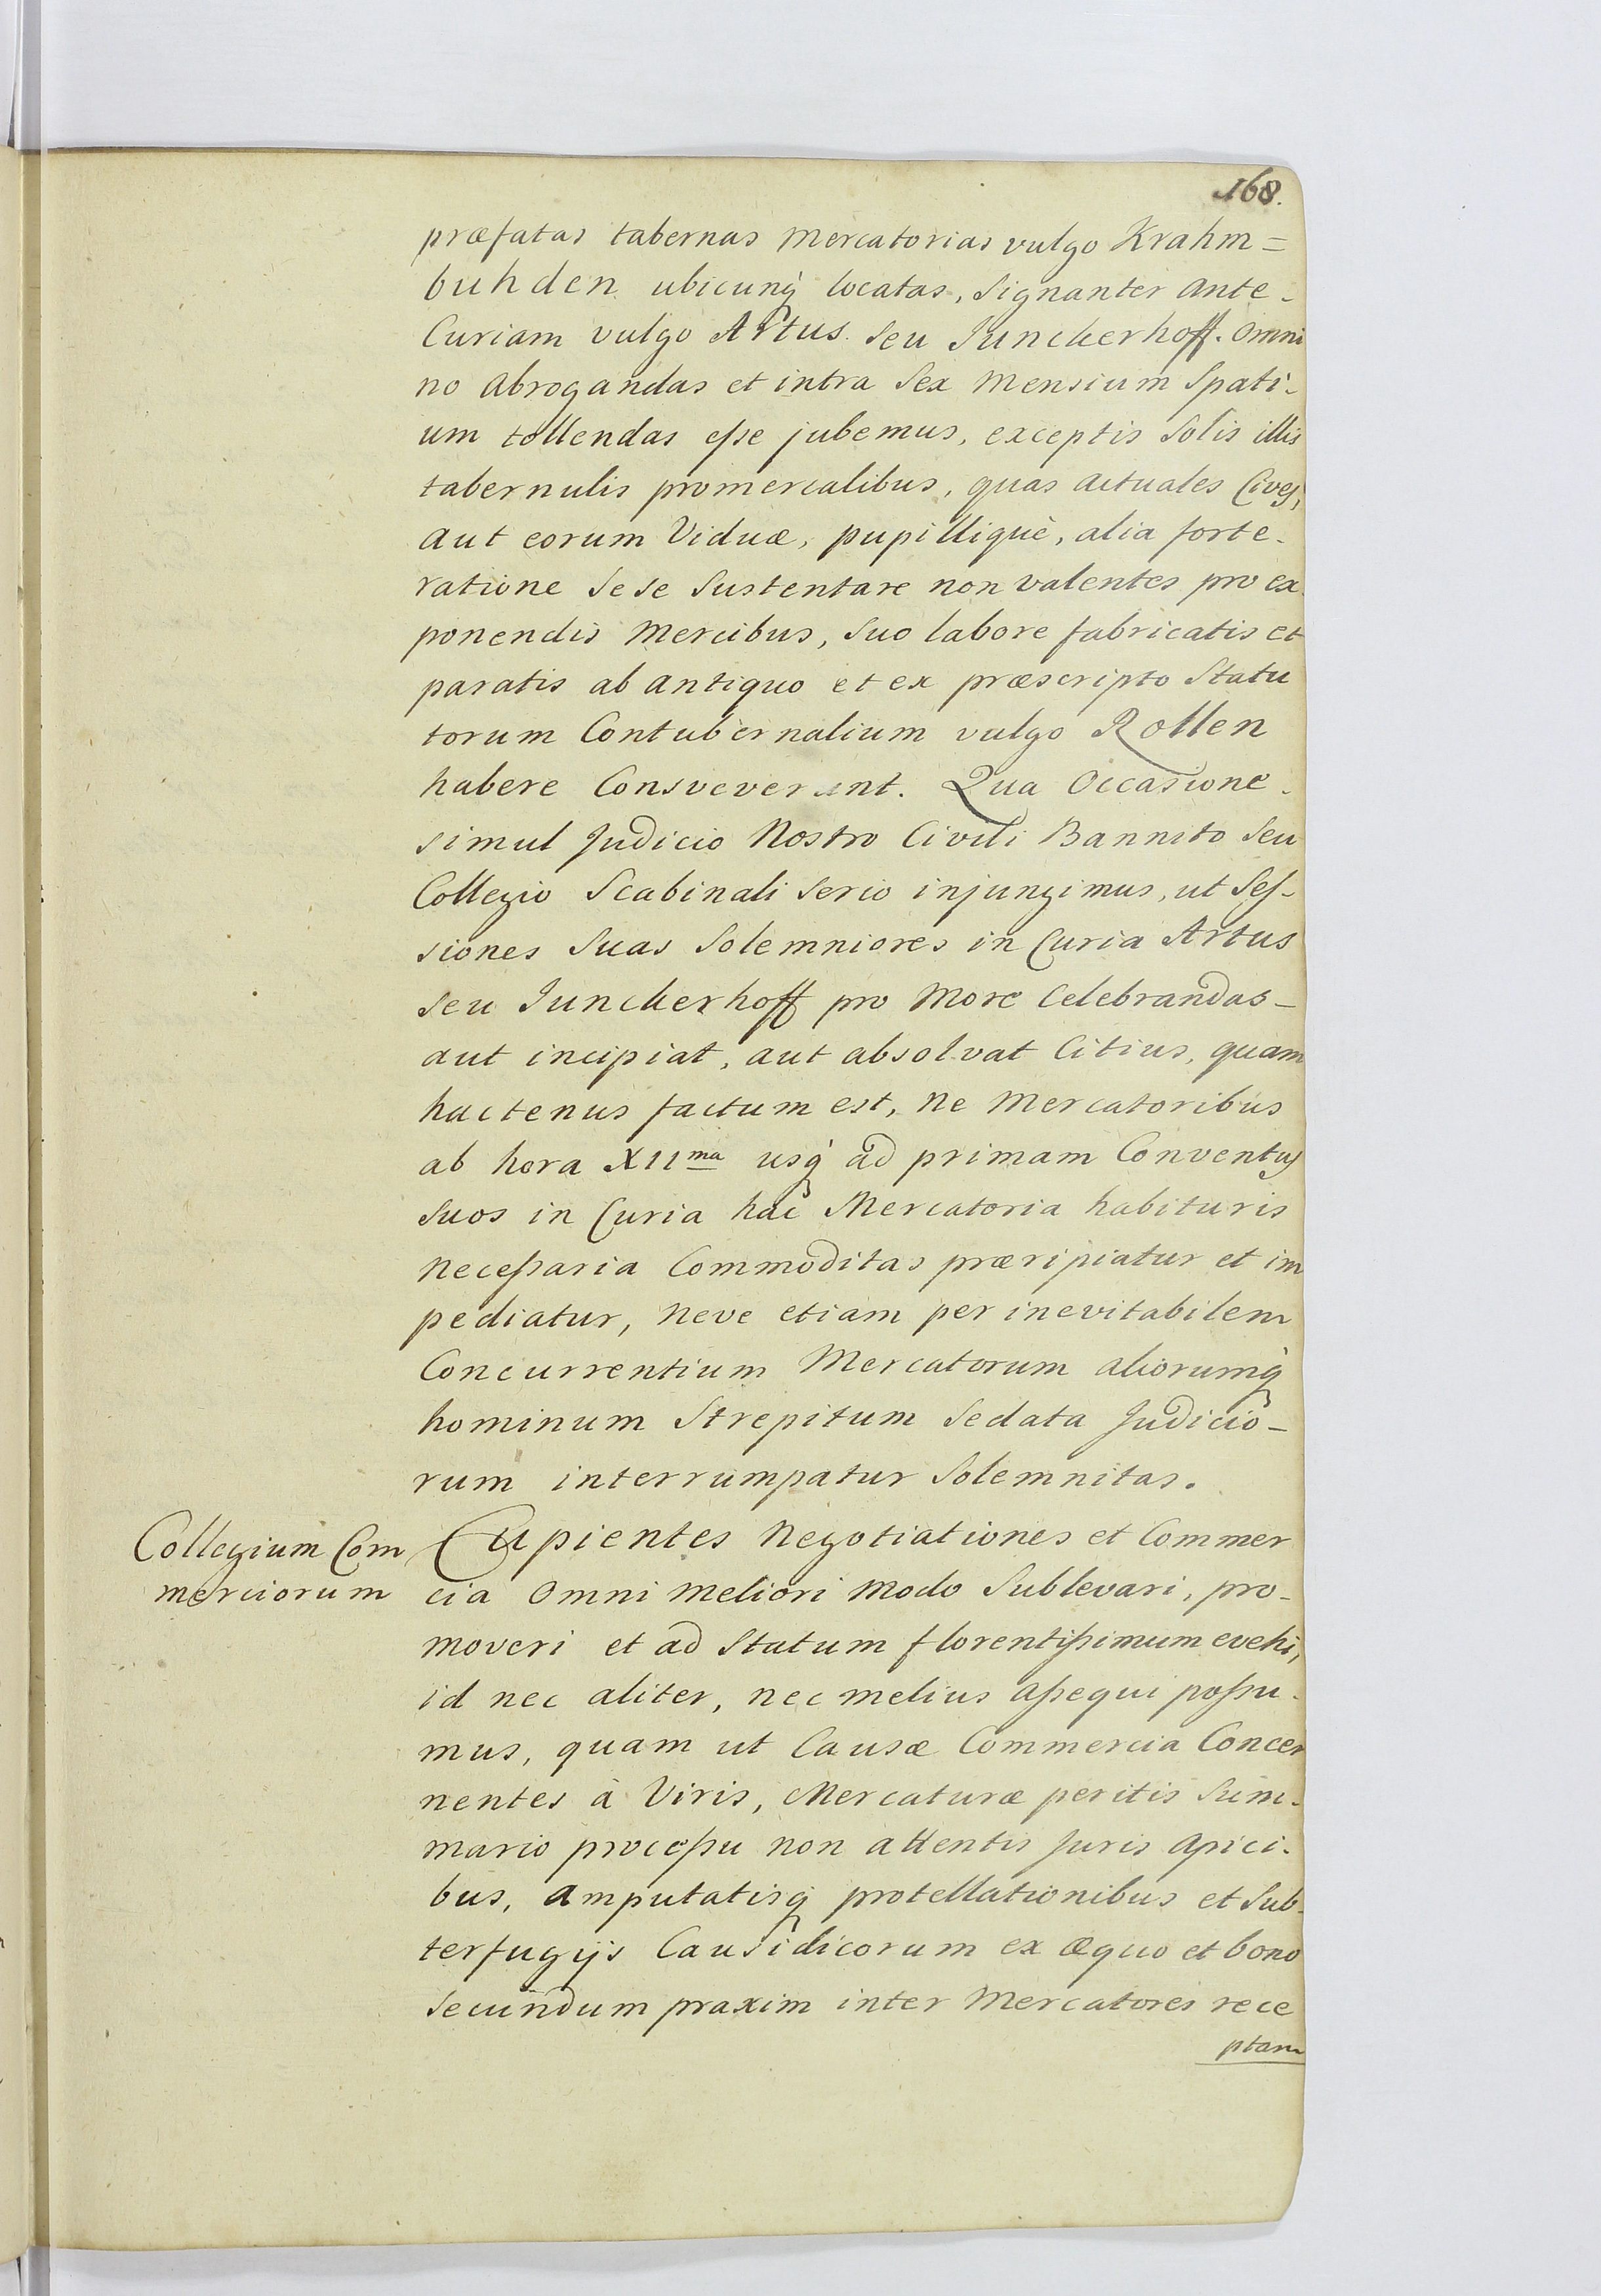 168.
præfatas tabernas Mercatorias vulgo Krahm=
buhden ubicunq́ locatas, signanter ante-
Curiam vulgo Artus seu Junckerhoff. omni
no abrogandas et intra sex Mensium spati-
um tollendas eſse jubemus, exceptis solis illis
tabernulis promercalibus, quas actuales Cives,
aut eorum Viduæ, pupilliquè, alia forte-
ratione sese sustentare non valentes pro ex
ponendis Mercibus, suo labore fabricatis et
paratis ab antiquo et ex præscripto Statu
torum Contubernalium vulgo Rollen
habere Consveverunt. Qua Occasione-
simul Judicio Nostro Civili Bannito seu
Collegio Scabinali serio injungimus, ut Seſ-
siones suas solemniores in Curia Artus
seu Junckerhoff pro More Celebrandas-
aut incipiat, aut absolvat Citius, quam
hactenus factum est, Ne Mercatoribus
ab hora XIIma usq́ ad primam Conventus
suos in Curia hac Mercatoria habituris
Neceſsaria Commoditas præripiatur et im
pediatur, Neve etiam per inevitabilem
Concurrentium Mercatorum aliorumq́
hominum Strepitum sedata Judicio-
rum interrumpatur solemnitas.
Collegium Com
merciorum
Cupientes Negotiationes et Commer
cia omni meliori Modo sublevari, pro-
moveri et ad statum florentiſsimum evehi,
id nec aliter, nec melius aſsequi poſsu-
mus, quam ut Causæ Commercia Concer
nentes à Viris, Mercaturæ peritis sum-
mario proceſsu non attentis Juris Apici-
bus, amputatisq́ protellationibus et sub-
terfugijs Causidicorum ex æquo et bono
secundum praxim inter Mercatores rece
ptam